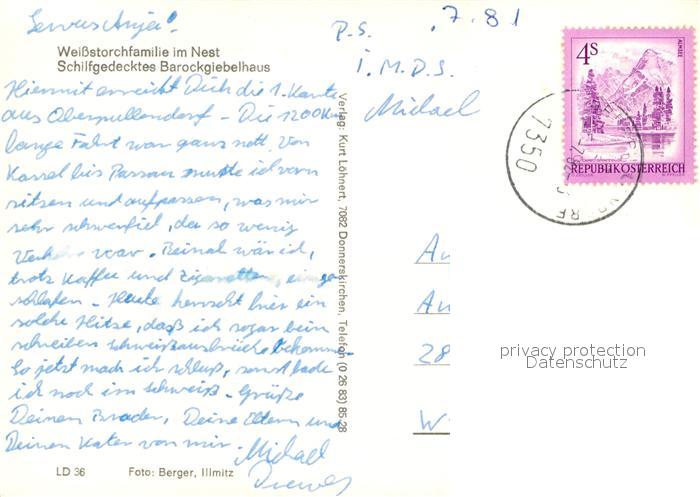 Servus Anja!
Weißstorchfamilie im Nest
Schilfgedecktes Barockgiebelhaus
Hiermit erreicht Dich die 1. Karte
aus Oberpullendorf - Die 1200 Km
lange Fahrt war ganz nett. Von
Kassel bis Passau mußte ich vorn
sitzen und aufpassen, was mir
sehr schwerfiel, da so wenig
Verkehr war. Beinal wär ich,
trotz Kaffee und Zigaretten, einge-
schlafen - Heute herrscht hier ein
solche Hitze, daß ich sogar beim
schreiben schweißausbrüche bekomme
So jetzt mach ich schluß, sonst bade
ich noch im schweiß - Grüße
Deinen Bruder, Deine Eltern und
Deinen Kater von mir.
Michael
LD 36
Foto: Berger, Illmitz
Verlag: Kurt Löhnert, 7082 Donnerskirchen, Telefon (0 26 83) 85 28
P.S. .7.81
I.M.D.S.
Michael
4S
ALMSEE
REPUBLIK ÖSTERREICH
7350
An
28
W
privacy protection
Datenschutz